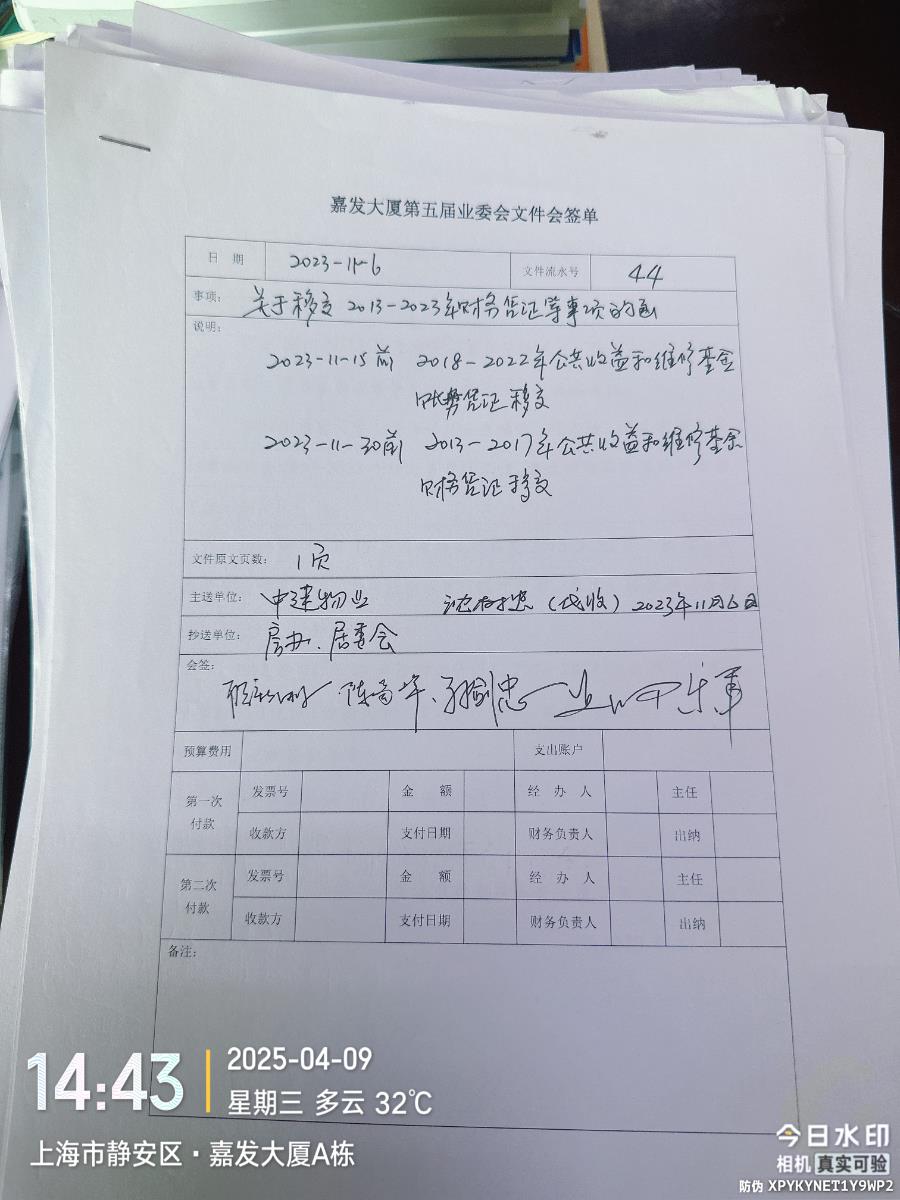 嘉发大厦第五届业委会文件会签单
日 期 2023-11-6 文件流水号 44
事项: 关于移交2013-2023年财务凭证等事项的函
说明:
2023-11-15前 2018-2022年公共收益和维修基金
账务凭证移交
2023-11-30前 2013-2017年公共收益和维修基金
财务凭证移交
文件原文页数: 1页
主送单位: 中建物业 (代收) 2023年11月6日
抄送单位: 房办、居委会
会签:
预算费用 支出账户
第一次付款 发票号 金 额 经 办 人 主任
收款方 支付日期 财务负责人 出纳
第二次付款 发票号 金 额 经 办 人 主任
收款方 支付日期 财务负责人 出纳
备注:
14:43
2025-04-09
星期三 多云 32℃
上海市静安区·嘉发大厦A栋
今日水印
相机 真实可验
防伪 XPYKYNET1Y9WP2